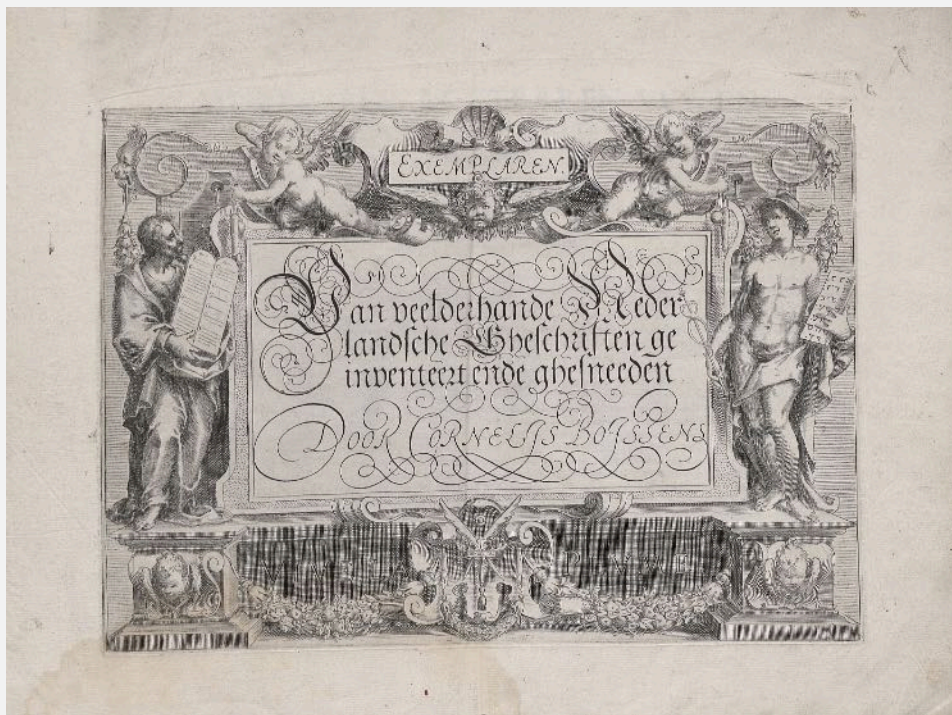 EXEMPLAREN.
Van veelderhande Neder
landsche Gheschriften ge
inventeert ende ghesneeden
DOOR CORNELIS BOISSENS